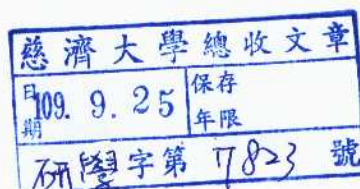 慈濟大學總收文章
日期 109. 9. 25 保存年限
研學字第 7823 號